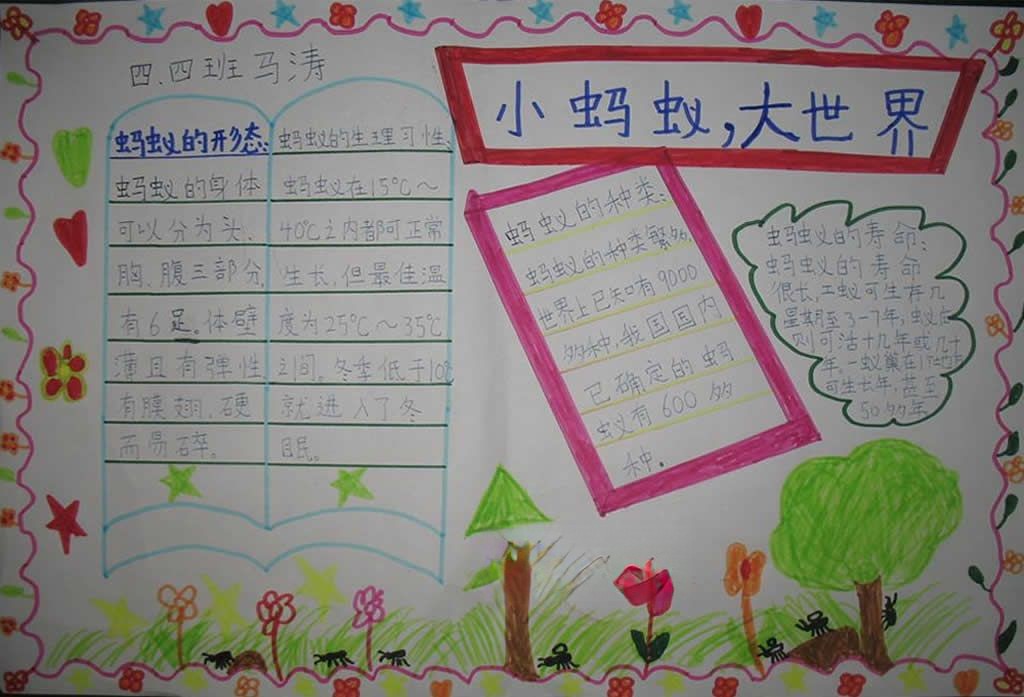 四.四班马涛
小蚂蚁,大世界
蚂蚁的形态:
蚂蚁的身体
可以分为头、
胸、腹三部分,
有6足。体壁
薄且有弹性
有膜翅,硬
而易碎。
蚂蚁的生理习性:
蚂蚁在15℃~
40℃之内都可正常
生长,但最佳温
度为25℃~35℃
之间。冬季低于10℃
就进入了冬
眠。
蚂蚁的种类:
蚂蚁的种类繁多,
世界上已知有9000
多种,我国国内
已确定的蚂
蚁有600多
种.
蚂蚁的寿命:
蚂蚁的寿命
很长,工蚁可生存几
星期至3-7年,蚁后
则可活十几年或几十
年。一蚁巢在1个地方
可生长年,甚至
50多年